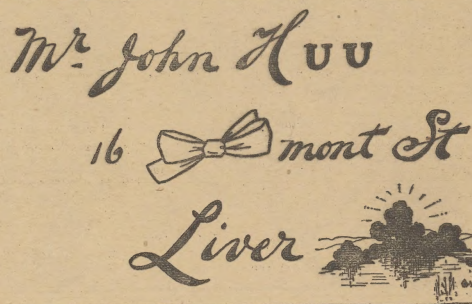 Mr. John H U U
16 mont St
Liver